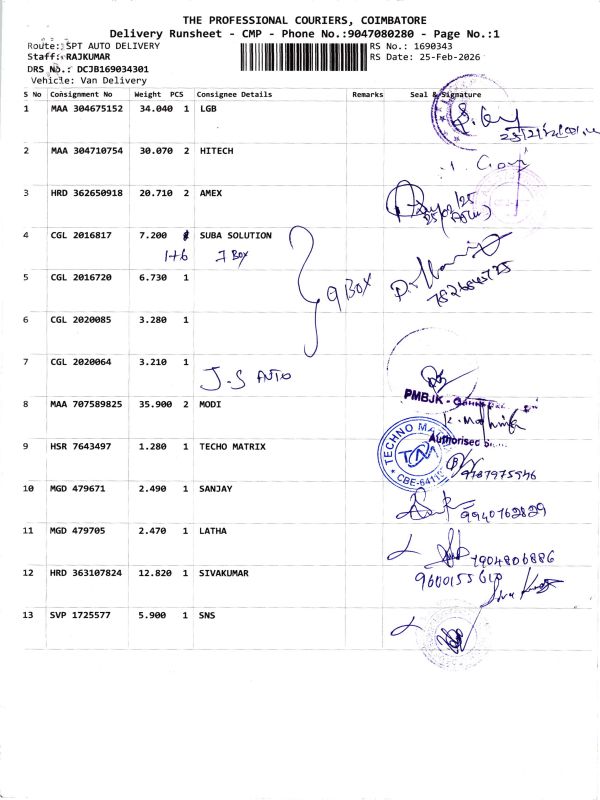 THE PROFESSIONAL COURIERS, COIMBATORE
Delivery Runsheet - CMP - Phone No.:9047080280 - Page No.:1
Route: SPT AUTO DELIVERY
RS No.: 1690343
Staff: RAJKUMAR
RS Date: 25-Feb-2026
DRS No.: DCJB169034301
Vehicle: Van Delivery
S No Consignment No Weight PCS Consignee Details Remarks Seal & Signature
1 MAA 304675152 34.040 1 LGB
2 MAA 304710754 30.070 2 HITECH
3 HRD 362650918 20.710 2 AMEX
4 CGL 2016817 7.200 SUBA SOLUTION
1+6 7 Box
5 CGL 2016720 6.730 1
9 BOX
6 CGL 2020085 3.280 1
7 CGL 2020064 3.210 1
J-S AUTO
PMBJK -
8 MAA 707589825 35.900 2 MODI
Authorised
9 HSR 7643497 1.280 1 TECHO MATRIX
TECHNO
TM
CBE-64110
9787975546
10 MGD 479671 2.490 1 SANJAY
9940762829
11 MGD 479705 2.470 1 LATHA
7904806886
12 HRD 363107824 12.820 1 SIVAKUMAR
9600155610
13 SVP 1725577 5.900 1 SNS